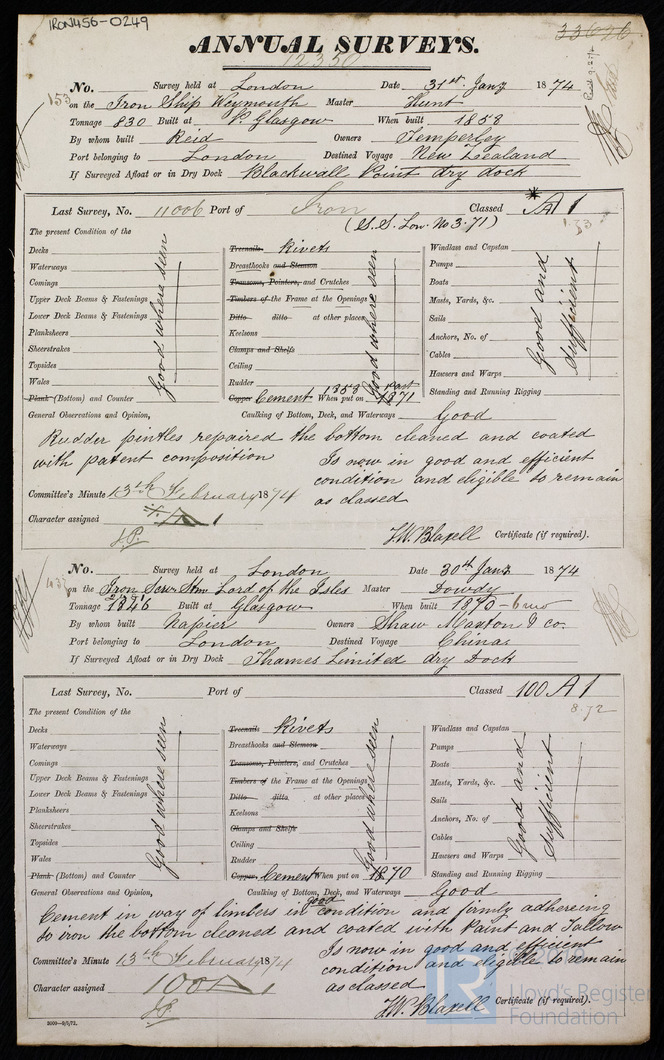 IRON456-0249
33626
ANNUAL SURVEYS.
12350
No. Survey held at London Date 31st Jany 1874
153 on the Iron Ship Weymouth Master Hunt
Tonnage 830 Built at P. Glasgow When built 1858
By whom built Reid Owners Temperley
Port belonging to London Destined Voyage New Zealand
If Surveyed Afloat or in Dry Dock Blackwall Point dry dock
Last Survey, No. 11006 Port of Iron Classed *A1
(S.S. Lon. No 3.71)
The present Condition of the
Decks
Waterways
Comings
Upper Deck Beams & Fastenings
Lower Deck Beams & Fastenings
Planksheers
Sheerstrakes
Topsides
Wales
Plank (Bottom) and Counter
Good where seen
Treenails Rivets
Breasthooks and Stemson
Transoms, Pointers, and Crutches
Timbers of the Frame at the Openings
Ditto ditto at other places
Keelsons
Clamps and Shelfs
Ceiling
Rudder
Copper Cement When put on 1858 part 1871
Good where seen
Windlass and Capstan
Pumps
Boats
Masts, Yards, &c.
Sails
Anchors, No. of
Cables
Hawsers and Warps
Standing and Running Rigging
Good and Sufficient
General Observations and Opinion, Caulking of Bottom, Deck, and Waterways Good
Rudder pintles repaired the bottom cleaned and coated
with patent composition Is now in good and efficient
condition and eligible to remain
as classed
Committee's Minute 13th February 1874
Character assigned A1
J.W. Blaxell Certificate (if required).
No. Survey held at London Date 30th Jany 1874
on the Iron Scrw Stmr Lord of the Isles Master Dowdy
Tonnage 1846 Built at Glasgow When built 1870-6 mo
By whom built Napier Owners Shaw Maxton & Co.
Port belonging to London Destined Voyage China
If Surveyed Afloat or in Dry Dock Thames Limited dry Dock
Last Survey, No. Port of Classed 100 A1
8.72
The present Condition of the
Decks
Waterways
Comings
Upper Deck Beams & Fastenings
Lower Deck Beams & Fastenings
Planksheers
Sheerstrakes
Topsides
Wales
Plank (Bottom) and Counter
Good where seen
Treenails Rivets
Breasthooks and Stemson
Transoms, Pointers, and Crutches
Timbers of the Frame at the Openings
Ditto ditto at other places
Keelsons
Clamps and Shelfs
Ceiling
Rudder
Copper Cement When put on 1870
Good where seen
Windlass and Capstan
Pumps
Boats
Masts, Yards, &c.
Sails
Anchors, No. of
Cables
Hawsers and Warps
Standing and Running Rigging
Good and Sufficient
General Observations and Opinion, Caulking of Bottom, Deck, and Waterways Good
Cement in way of limbers in good condition and firmly adhereing
to iron the bottom cleaned and coated with Paint and Tallow
Is now in good and efficient
condition and eligible to remain
as classed
Committee's Minute 13th February 1874
Character assigned 100A1
J.W. Blaxell Certificate (if required).
2000—9/5/72.
LR
Lloyd's Register
Foundation